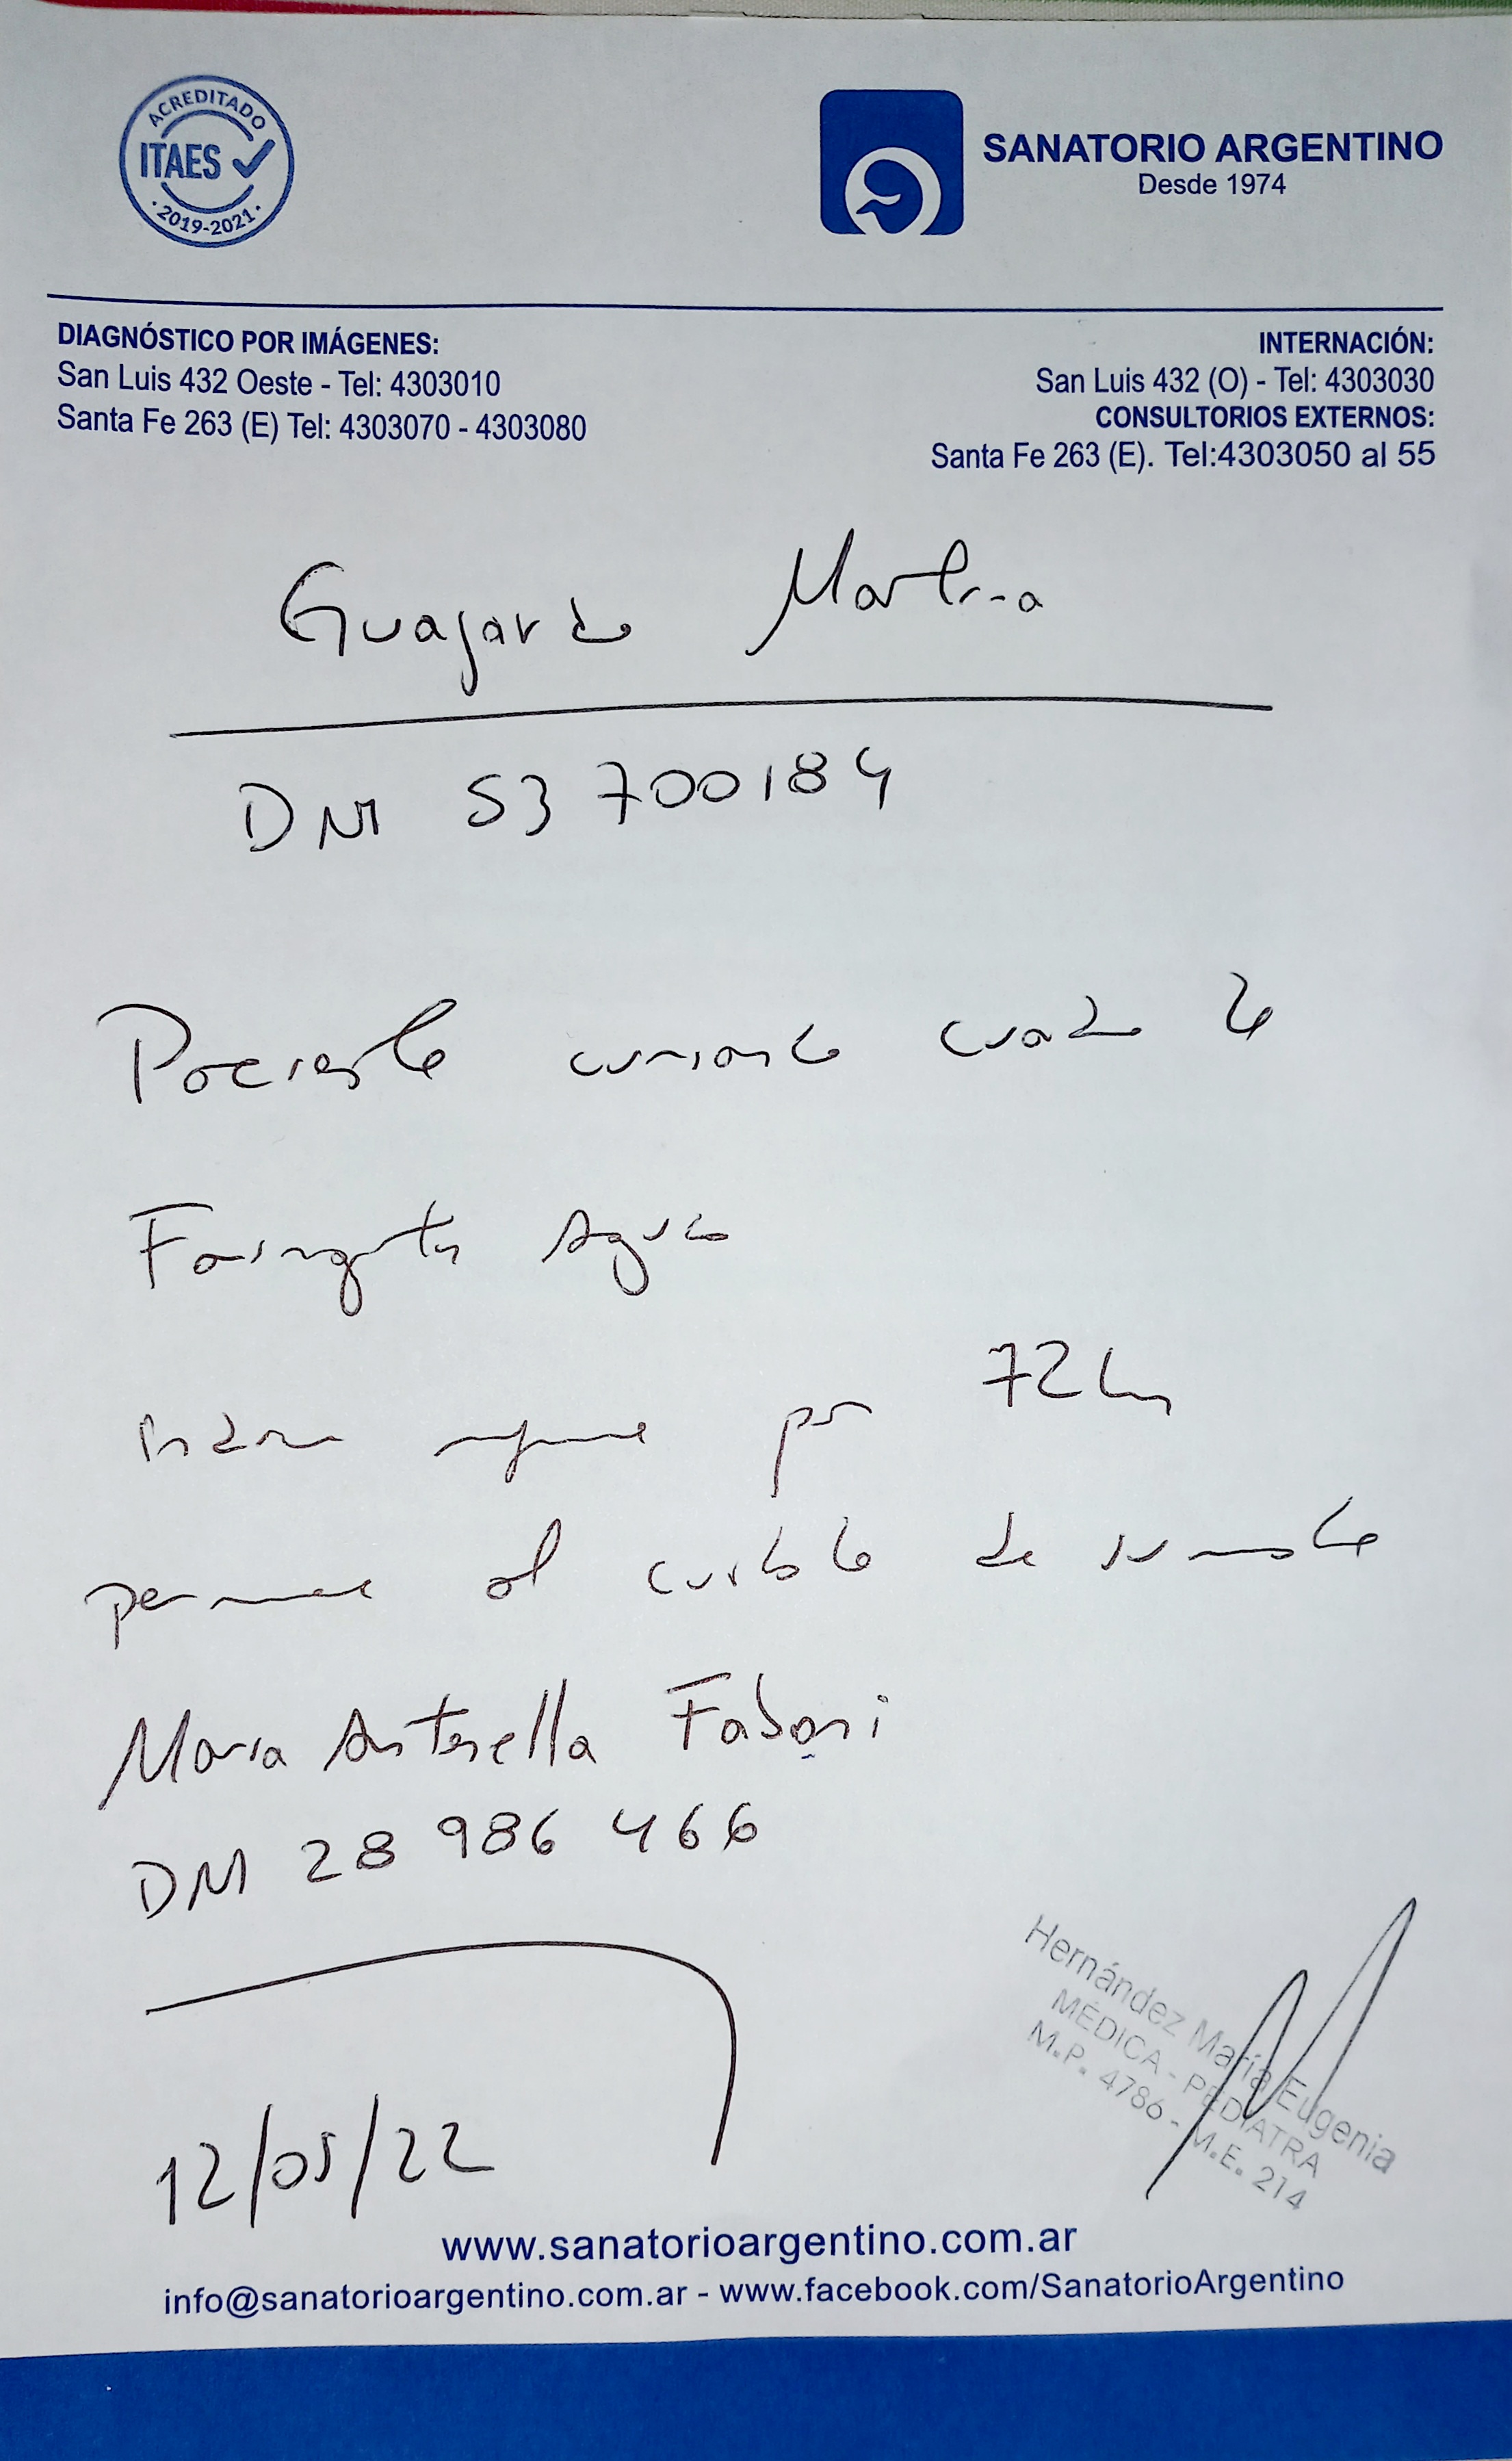 ACREDITADO
ITAES
·2019-2021·
SANATORIO ARGENTINO
Desde 1974
DIAGNÓSTICO POR IMÁGENES:
San Luis 432 Oeste - Tel: 4303010
Santa Fe 263 (E) Tel: 4303070 - 4303080
INTERNACIÓN:
San Luis 432 (O) - Tel: 4303030
CONSULTORIOS EXTERNOS:
Santa Fe 263 (E). Tel:4303050 al 55
Guajardo Martina
DNI 53 700184
Paciente cursando cuadro de
Faringitis Aguda
Indico reposo por 72hs
permanece al cuidado de su madre
Maria Antonella Fabani
DNI 28 986 466
12/05/22
Hernández María Eugenia
MÉDICA - PEDIATRA
M.P. 4786 - M.E. 214
www.sanatorioargentino.com.ar
info@sanatorioargentino.com.ar - www.facebook.com/SanatorioArgentino